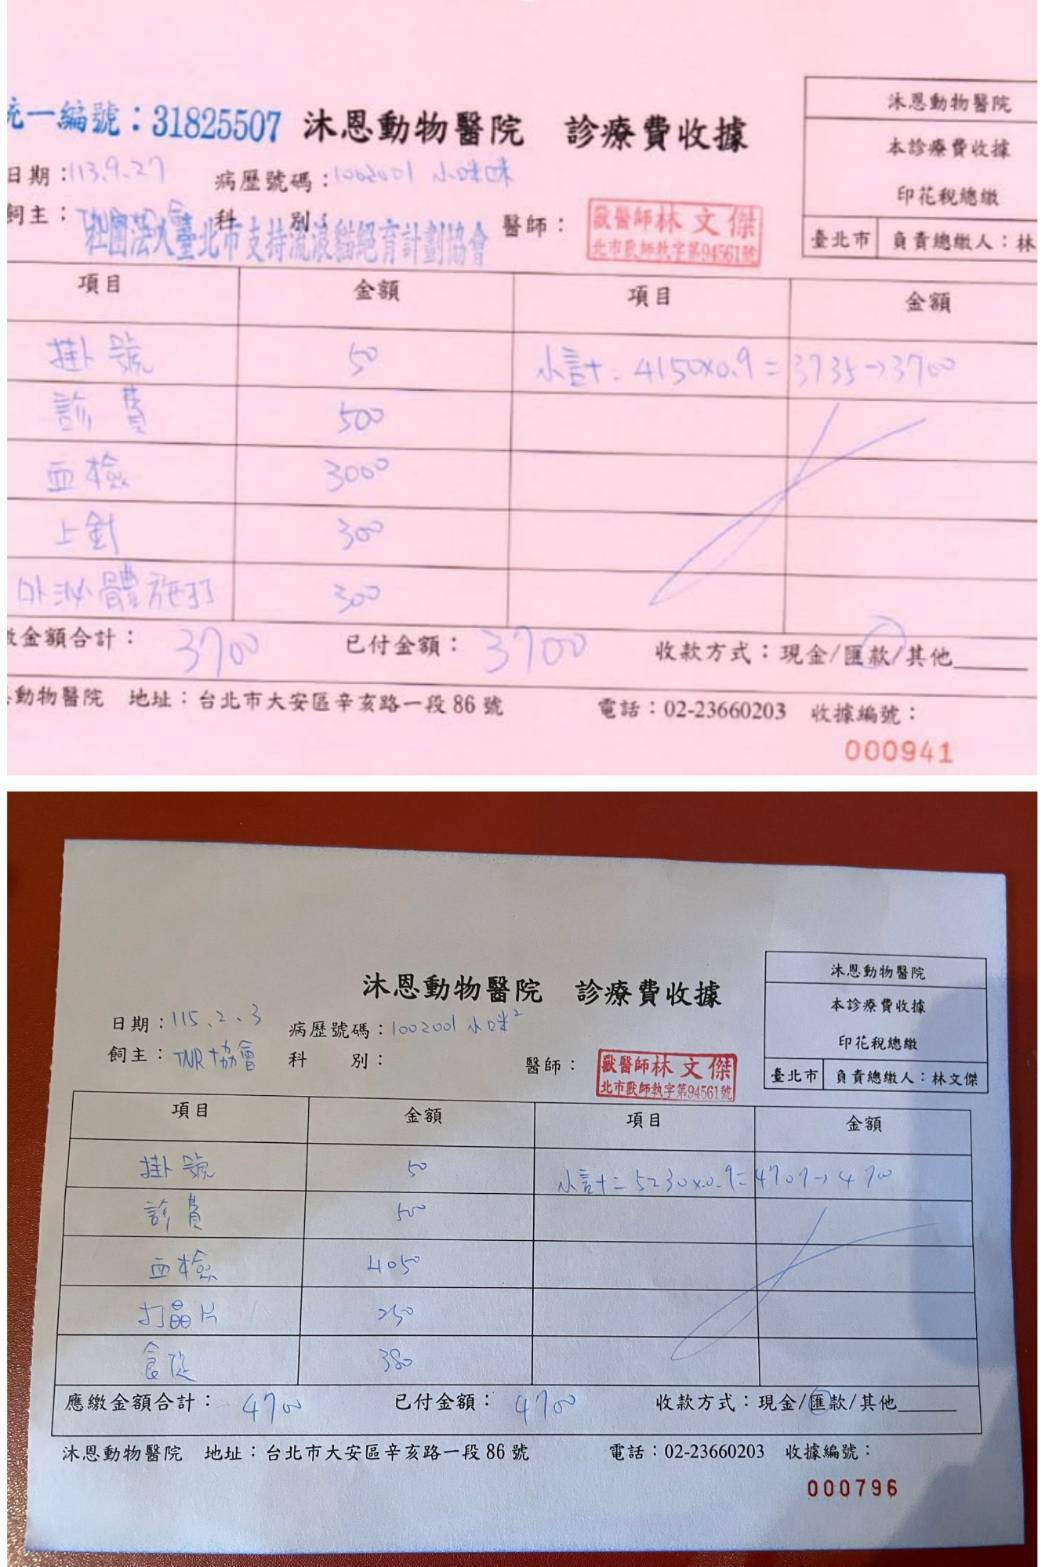 統一編號：31825507 沐恩動物醫院 診療費收據
沐恩動物醫院
本診療費收據
印花稅總繳
臺北市 負責總繳人：林
日期：113.9.27 病歷號碼：1002001 小咪咪
飼主：TNR協會 科 別： 醫師：
社團法人臺北市支持流浪貓絕育計劃協會
獸醫師林文傑
北市獸師執字第94561號
項目 金額 項目 金額
掛號 50 小計. 4150x0.9=3735→3700
診費 500
血檢 3000
上針 300
外泌體施打 300
繳金額合計：3700 已付金額：3700 收款方式：現金/匯款/其他
動物醫院 地址：台北市大安區辛亥路一段86號 電話：02-23660203 收據編號：
000941
沐恩動物醫院 診療費收據
沐恩動物醫院
本診療費收據
印花稅總繳
臺北市 負責總繳人：林文傑
日期：115.2.3 病歷號碼：1002001 小咪²
飼主：TNR協會 科 別： 醫師：
獸醫師林文傑
北市獸師執字第94561號
項目 金額 項目 金額
掛號 50 小計=5230x0.9=4707→4700
診費 500
血檢 4050
打晶片 250
食碇 380
應繳金額合計：4700 已付金額：4700 收款方式：現金/匯款/其他
沐恩動物醫院 地址：台北市大安區辛亥路一段86號 電話：02-23660203 收據編號：
000796